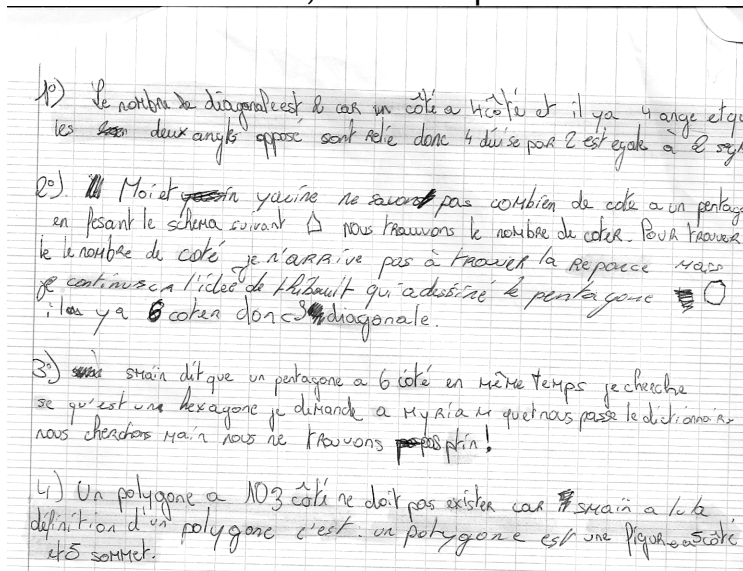 1°) Le nombre de diagonale est 2 car un côté a 4 côté et il ya 4 ange et qu
les deux angls opposé sont relié donc 4 divise par 2 est egale a 2 seg
2°). Moi et yacine ne savont pas combien de cote a un pentag
en fesant le schema suivant nous trouvons le nombre de coter. Pour trouver
le le nombre de coté je n'arrive pas à trouver la reponce mais
je continus l'idée de thibault qui a dessiné le pentagone
il ya 6 coter donc diagonale.
3°) smain dit que un pentagone a 6 coté en même temps je cherche
se qu'est une hexagone je demande a Myriam quet nous passe le dictionnaire
nous cherchons main nous ne trouvons pas !
4) Un polygone a 103 côté ne doit pas exister car smain a lu la
définition d'un polygone c'est. un polygone est une figure a 5 coté
et 5 sommet.